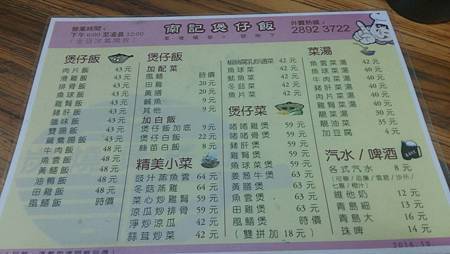 營業時間:
下午 6:00 至凌晨 12:00
南記煲仔飯
外賣熱線:
2892 3722
煲仔飯
肉片飯 43元
滑雞飯 43元
排骨飯 43元
魚球飯 43元
雞腎飯 43元
豬肝飯 43元
豬腰飯 43元
雙腸飯 43元
鹹魚飯
牛肉飯 48元
魚雲飯 48元
黃鱔飯 48元
油鴨飯 48元
田雞飯 48元
風鱔飯 時價
煲仔飯
加配菜
風鱔 時價
田雞 14元
黃鱔 14元
鹹魚 9元
其他 9元
加白飯
煲仔飯加底 9元
煲仔白飯 22元
絲苗白飯 8元
精美小菜
豉汁蒸魚雲 64元
冬菇蒸雞 64元
菜心炒雞腎 59元
涼瓜炒排骨 59元
淨炒涼瓜 42元
蒜茸炒菜 42元
椒絲腐乳炒通菜 42元
魚球菜 42元
冬菇菜 42元
魚片菜 42元
煲仔菜
啫啫雞煲 59元
啫啫腎煲 59元
豬肝煲 59元
薑葱牛煲 59元
黃鱔煲 63元
魚雲煲 63元
田雞煲 63元
風鱔煲 時價
(雙拼加 18元)
菜湯
魚球菜湯
魚片菜湯
牛肉菜湯
肉片菜湯
豬肝菜湯
加豆腐 4元
汽水/啤酒
各式汽水 8元
維他奶 12元
青島細 13元
青島大 16元
珠啤 14元